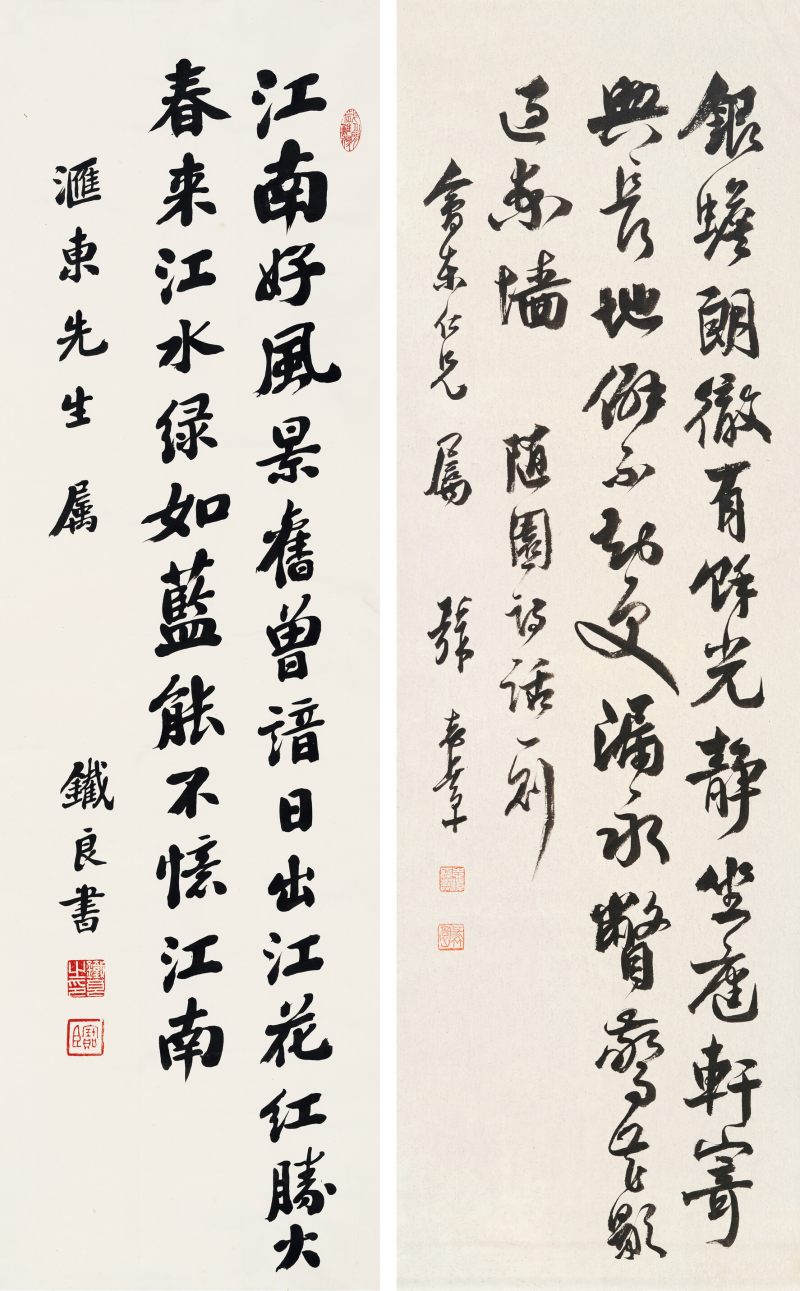 銀蟾朗徹有餘光靜坐虛軒寄
興長地僻不知更漏永瞥驚花影
過東墻 随園詩話一則
會東仁兄 屬
江南好風景舊曾諳日出江花红勝火
春来江水绿如藍能不憶江南
滙東先生 属 鐵良書
鐵良之印
寶臣